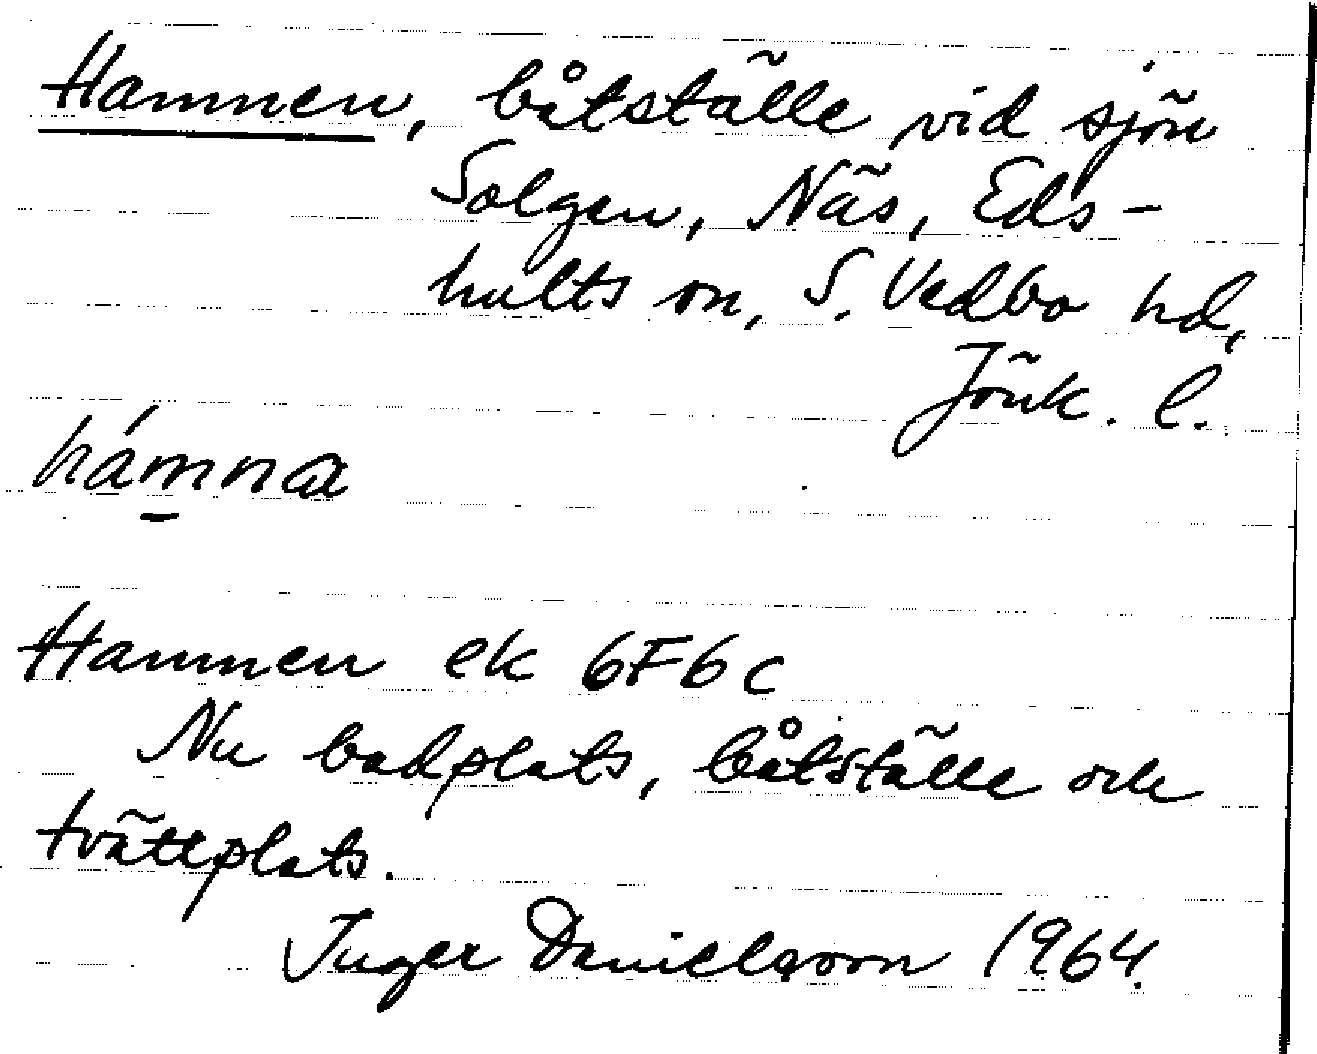 Hamnen, båtställe vid sjön
Solgen, Näs, Eds-
hults sn, S. Vedbo hd,
Jönk. l.
hámna
Hamnen ek 6F6c
Nu badplats, båtställe och
tvättplats.
Inger Danielsson 1964.